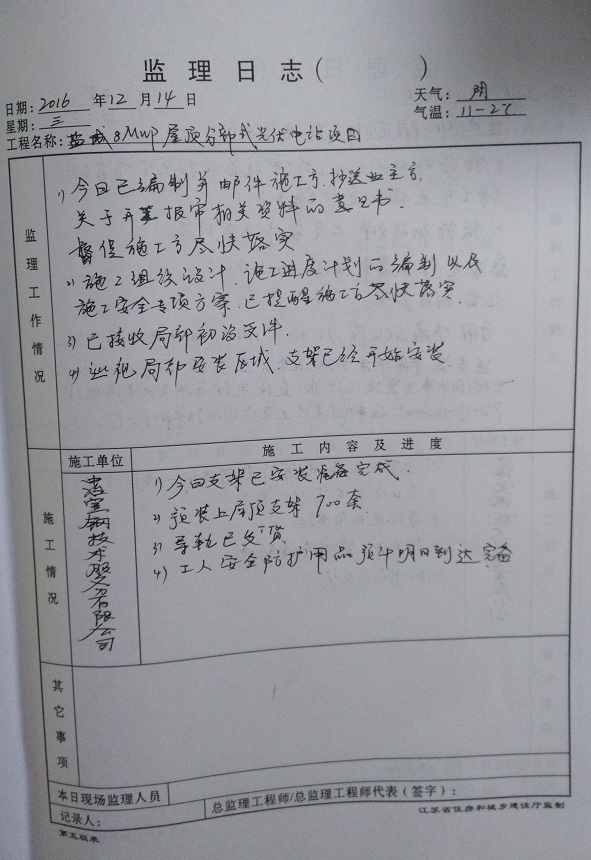 监理日志( )
日期：2016 年 12 月 14 日 天气：阴
星期：三 气温：11-2℃
工程名称：盐城8MWP屋顶分部式光伏电站项目
监理工作情况
1) 今日已编制并邮件施工方.抄送业主方.
关于开工报审相关资料的意见书.
督促施工方尽快落实
2) 施工组织设计.施工进度计划的编制以及
施工安全专项方案.已提醒施工方尽快落实.
3) 已接收局部初设文件.
4) 巡视局部安装区域.支架已经开始安装
施工情况
施工单位 施工内容及进度
技术服务有限公司
1) 今日支架已安装准备完成.
2) 预装上屋顶支架 700套.
3) 导轨已交货
4) 工人安全防护用品预计明日到达完备
其它事项
本日现场监理人员
记录人： 总监理工程师/总监理工程师代表（签字）：
第五版表 江苏省住房和城乡建设厅监制